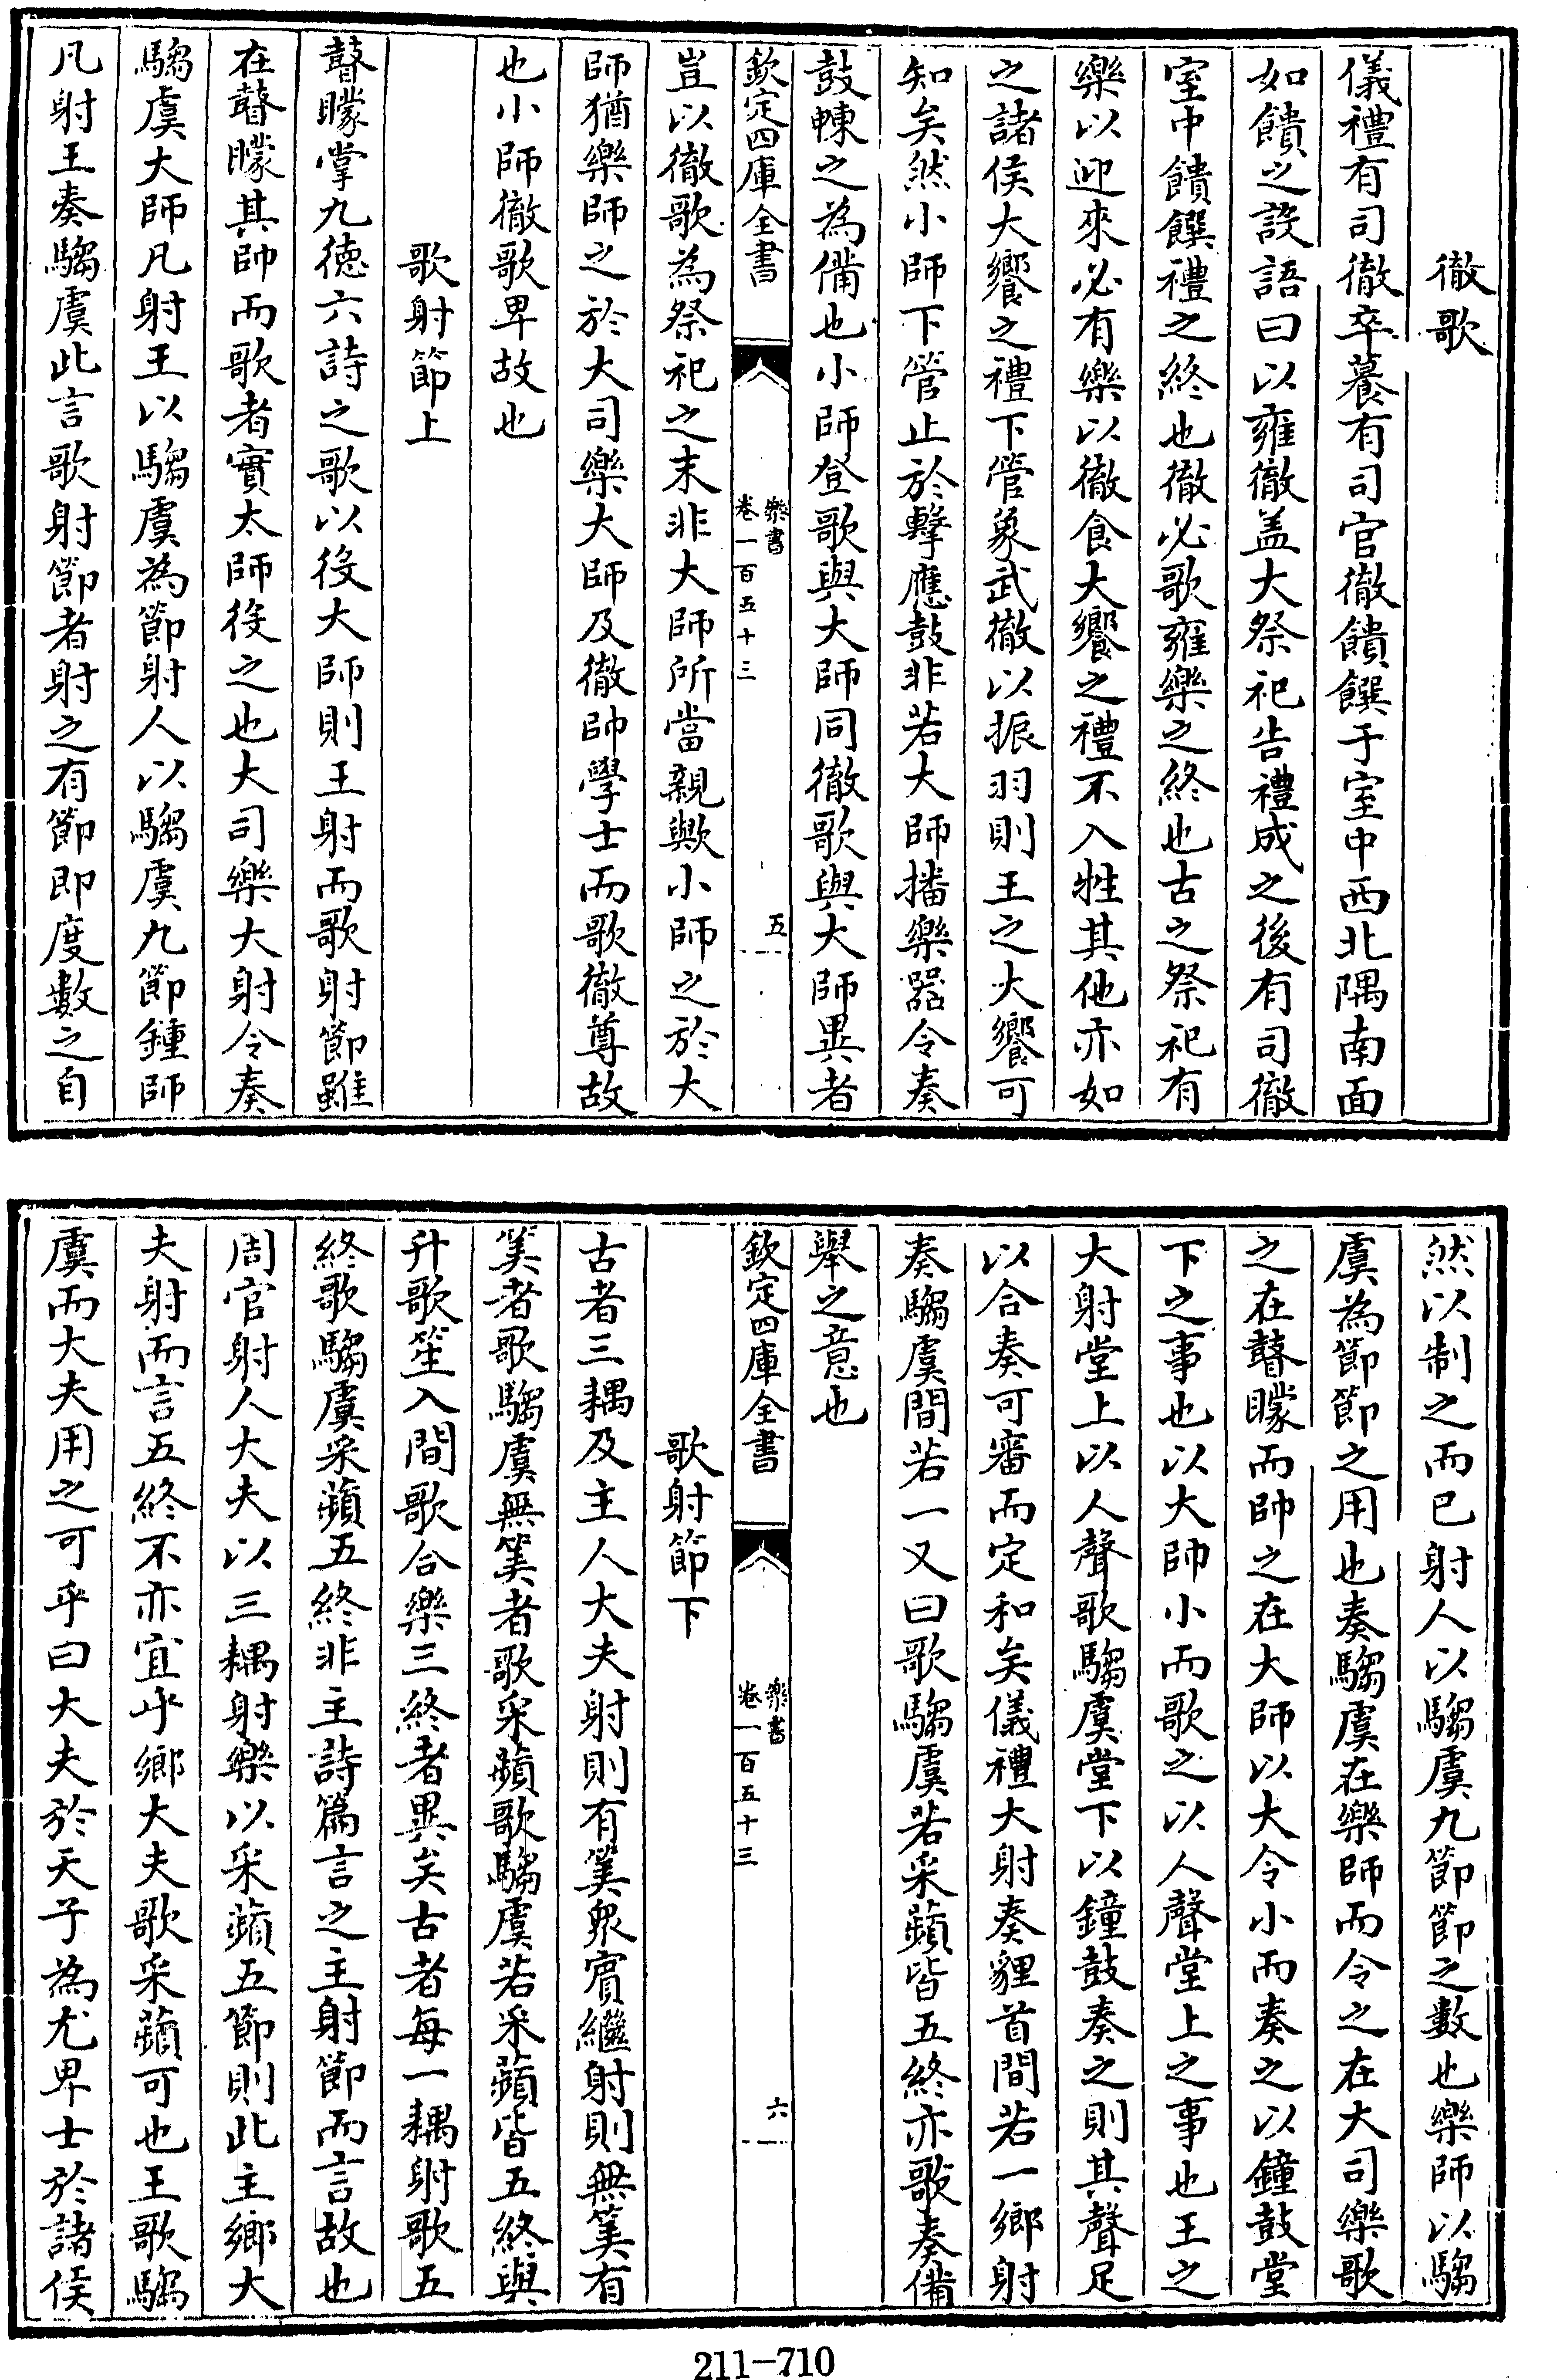 徹歌
儀禮有司徹卒養有司官徹饋饌于室中西北隅南面
如饋之設語曰以雍徹盖大祭祀告禮成之後有司徹
室中饋饌禮之終也徹必歌雍樂之終也古之祭祀有
樂以迎來必有樂以徹食大饗之禮不入牲其他亦如
之諸侯大饗之禮下管象武徹以振羽則王之大饗可
知矣然小師下管止於擊應鼓非若大師播樂器令奏
鼓朄之為備也小師登歌與大師同徹歌與大師異者
欽定四庫全書
樂書
卷一百五十三
五
豈以徹歌為祭祀之末非大師所當親歟小師之於大
師猶樂師之於大司樂大師及徹帥學士而歌徹尊故
也小師徹歌卑故也
歌射節上
瞽矇掌九德六詩之歌以役大師則王射而歌射節雖
在瞽矇其帥而歌者實太師役之也大司樂大射令奏
騶虞大師凡射王以騶虞為節射人以騶虞九節鍾師
凡射王奏騶虞此言歌射節者射之有節即度數之自
然以制之而已射人以騶虞九節節之數也樂師以騶
虞為節節之用也奏騶虞在樂師而令之在大司樂歌
之在瞽矇而帥之在大師以大令小而奏之以鐘鼓堂
下之事也以大帥小而歌之以人聲堂上之事也王之
大射堂上以人聲歌騶虞堂下以鐘鼓奏之則其聲足
以合奏可審而定和矣儀禮大射奏貍首間若一鄉射
奏騶虞間若一又曰歌騶虞若采蘋皆五終亦歌奏備
舉之意也
欽定四庫全書
樂書
卷一百五十三
六
歌射節下
古者三耦及主人大夫射則有筭眾賓繼射則無筭有
筭者歌騶虞無筭者歌采蘋歌騶虞若采蘋皆五終與
升歌笙入間歌合樂三終者異矣古者每一耦射歌五
終歌騶虞采蘋五終非主詩篇言之主射節而言故也
周官射人大夫以三耦射樂以采蘋五節則此主鄉大
夫射而言五終不亦宜乎鄉大夫歌采蘋可也王歌騶
虞而大夫用之可乎曰大夫於天子為尤卑士於諸侯
211-710